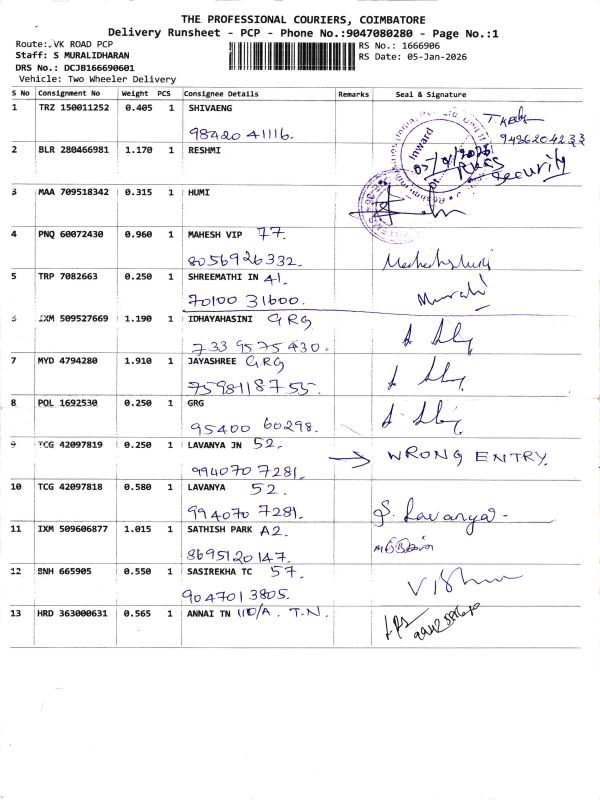 THE PROFESSIONAL COURIERS, COIMBATORE
Delivery Runsheet - PCP - Phone No.:9047080280 - Page No.:1
Route:.VK ROAD PCP
RS No.: 1666906
Staff: S MURALIDHARAN
RS Date: 05-Jan-2026
DRS No.: DCJB166690601
Vehicle: Two Wheeler Delivery
S No Consignment No Weight PCS Consignee Details Remarks Seal & Signature
1 TRZ 150011252 0.405 1 SHIVAENG
98420 41116.
9486204233
Inward
security
2 BLR 280466981 1.170 1 RESHMI
3 MAA 709518342 0.315 1 HUMI
4 PNQ 60072430 0.960 1 MAHESH VIP 77.
8056926332.
5 TRP 7082663 0.250 1 SHREEMATHI IN 41.
70100 31600.
Murali
6 IXM 509527669 1.190 1 IDHAYAHASINI GRG
733 9575430.
7 MYD 4794280 1.910 1 JAYASHREE GRG
7598118755.
8 POL 1692530 0.250 1 GRG
95400 60298.
9 TCG 42097819 0.250 1 LAVANYA JN 52.
994070 7281.
→ WRONG ENTRY.
10 TCG 42097818 0.580 1 LAVANYA 52.
994070 7281.
S. Lavanya-
11 IXM 509606877 1.015 1 SATHISH PARK A2.
8695120147.
12 BNH 665905 0.550 1 SASIREKHA TC 57.
904701 3805.
13 HRD 363000631 0.565 1 ANNAI TN 110/A. T.N.